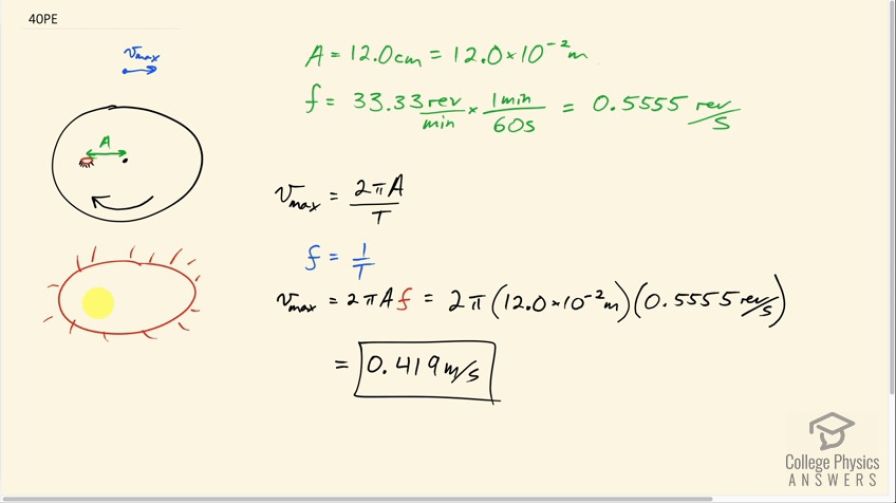 40PE
v_max
A = 12.0cm = 12.0×10⁻²m
f = 33.33 rev/min × 1min/60s = 0.5555 rev/s
A
v_max = 2πA/T
f = 1/T
v_max = 2πAf = 2π(12.0×10⁻²m)(0.5555 rev/s)
= 0.419 m/s
College Physics
ANSWERS